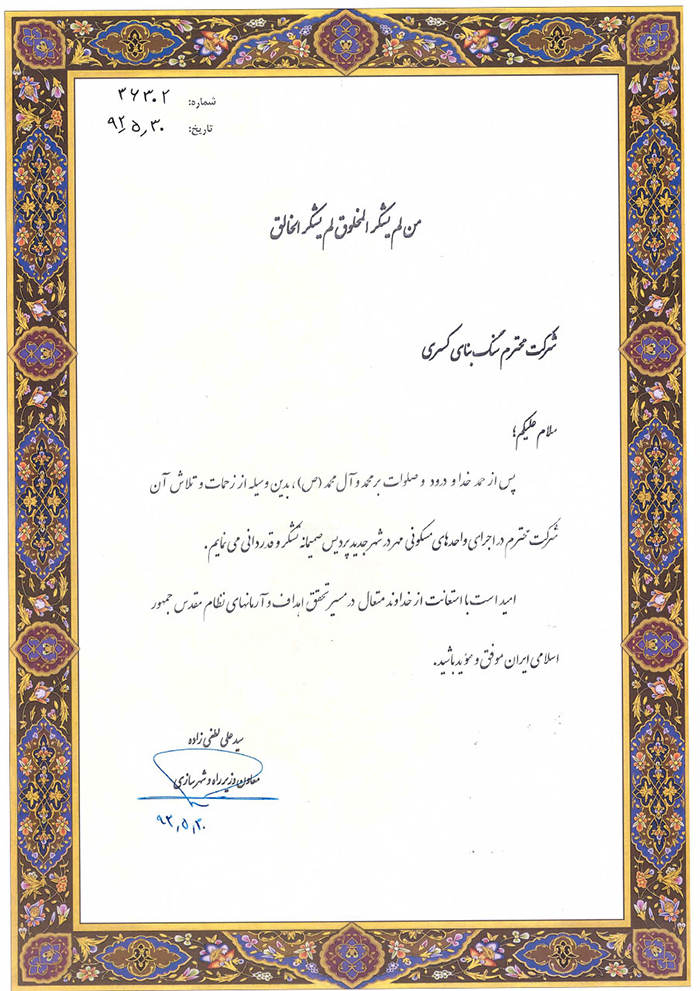 شماره: ۳۶۳۰۲
تاریخ: ۹۲٫۵٫۳۰
من لم یشکر المخلوق لم یشکر الخالق
شرکت محترم سنگ بنای کسری
سلام علیکم؛
پس از حمد خدا و درود و صلوات بر محمد و آل محمد (ص)، بدین وسیله از زحمات و تلاش آن
شرکت محترم در اجرای واحدهای مسکونی مهر در شهر جدید پردیس صمیمانه تشکر و قدردانی می نمایم.
امید است با استعانت از خداوند متعال در مسیر تحقق اهداف و آرمانهای نظام مقدس جمهور
اسلامی ایران موفق و موید باشید.
سید علی لطفی زاده
معاون وزیر راه و شهرسازی
۹۲٫۵٫۳۰